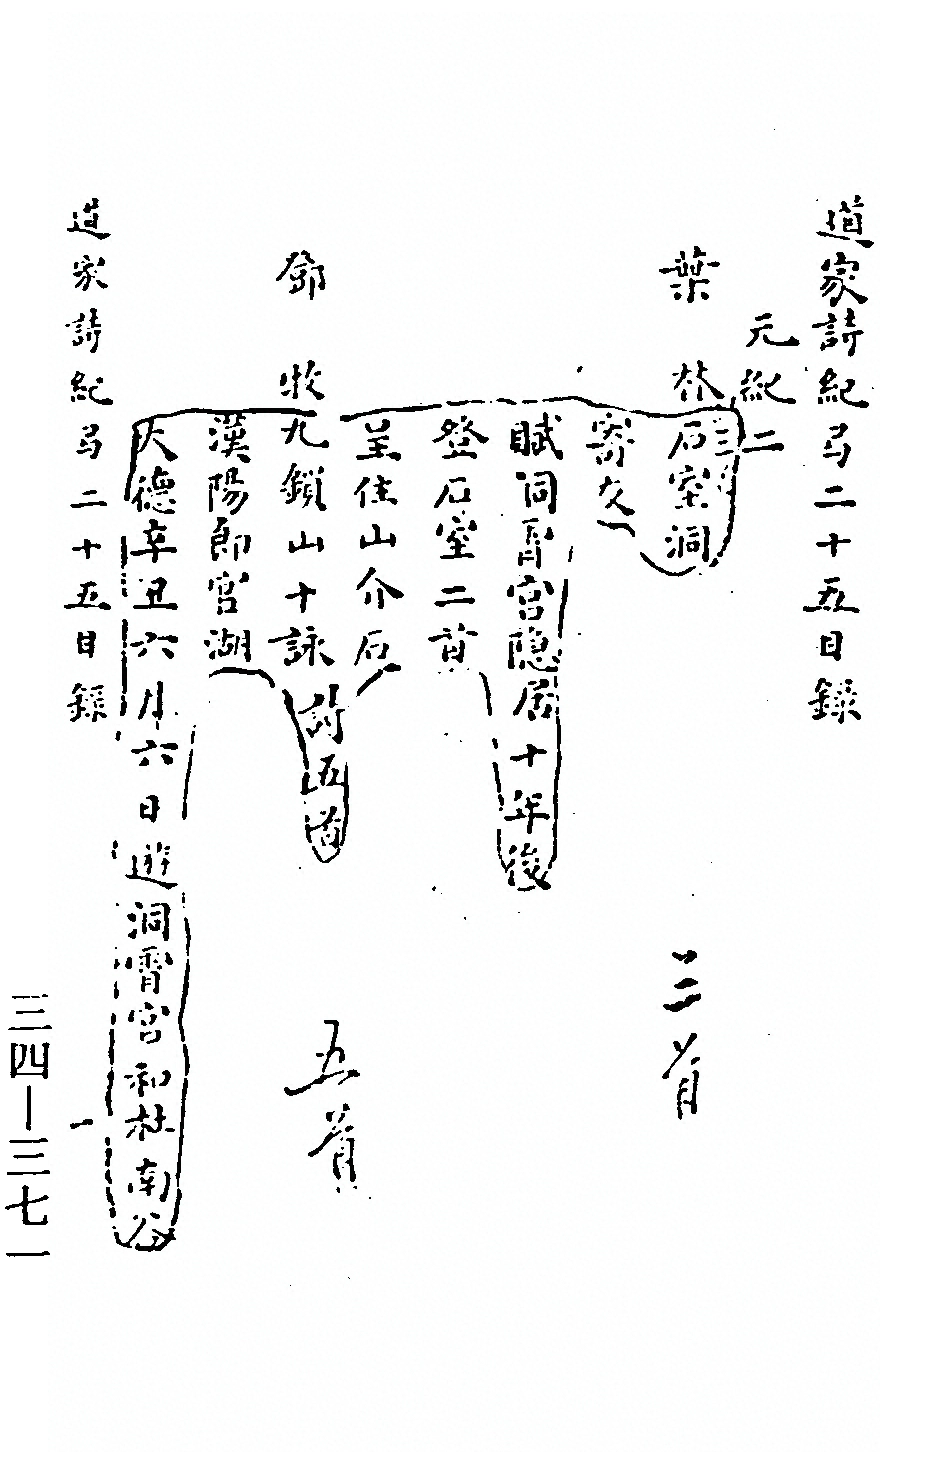 道家詩紀弓二十五目録
元紀二
葉林
石室洞
三首
寄友
賦洞霄宮隐居十年後
登石室二首
呈住山介石
鄧牧
九鎖山十詠
討五首
五首
漢陽郎官湖
大德辛丑六月六日遊洞霄宮和杜南谷
道家詩紀弓二十五目録
一
三四—三七一